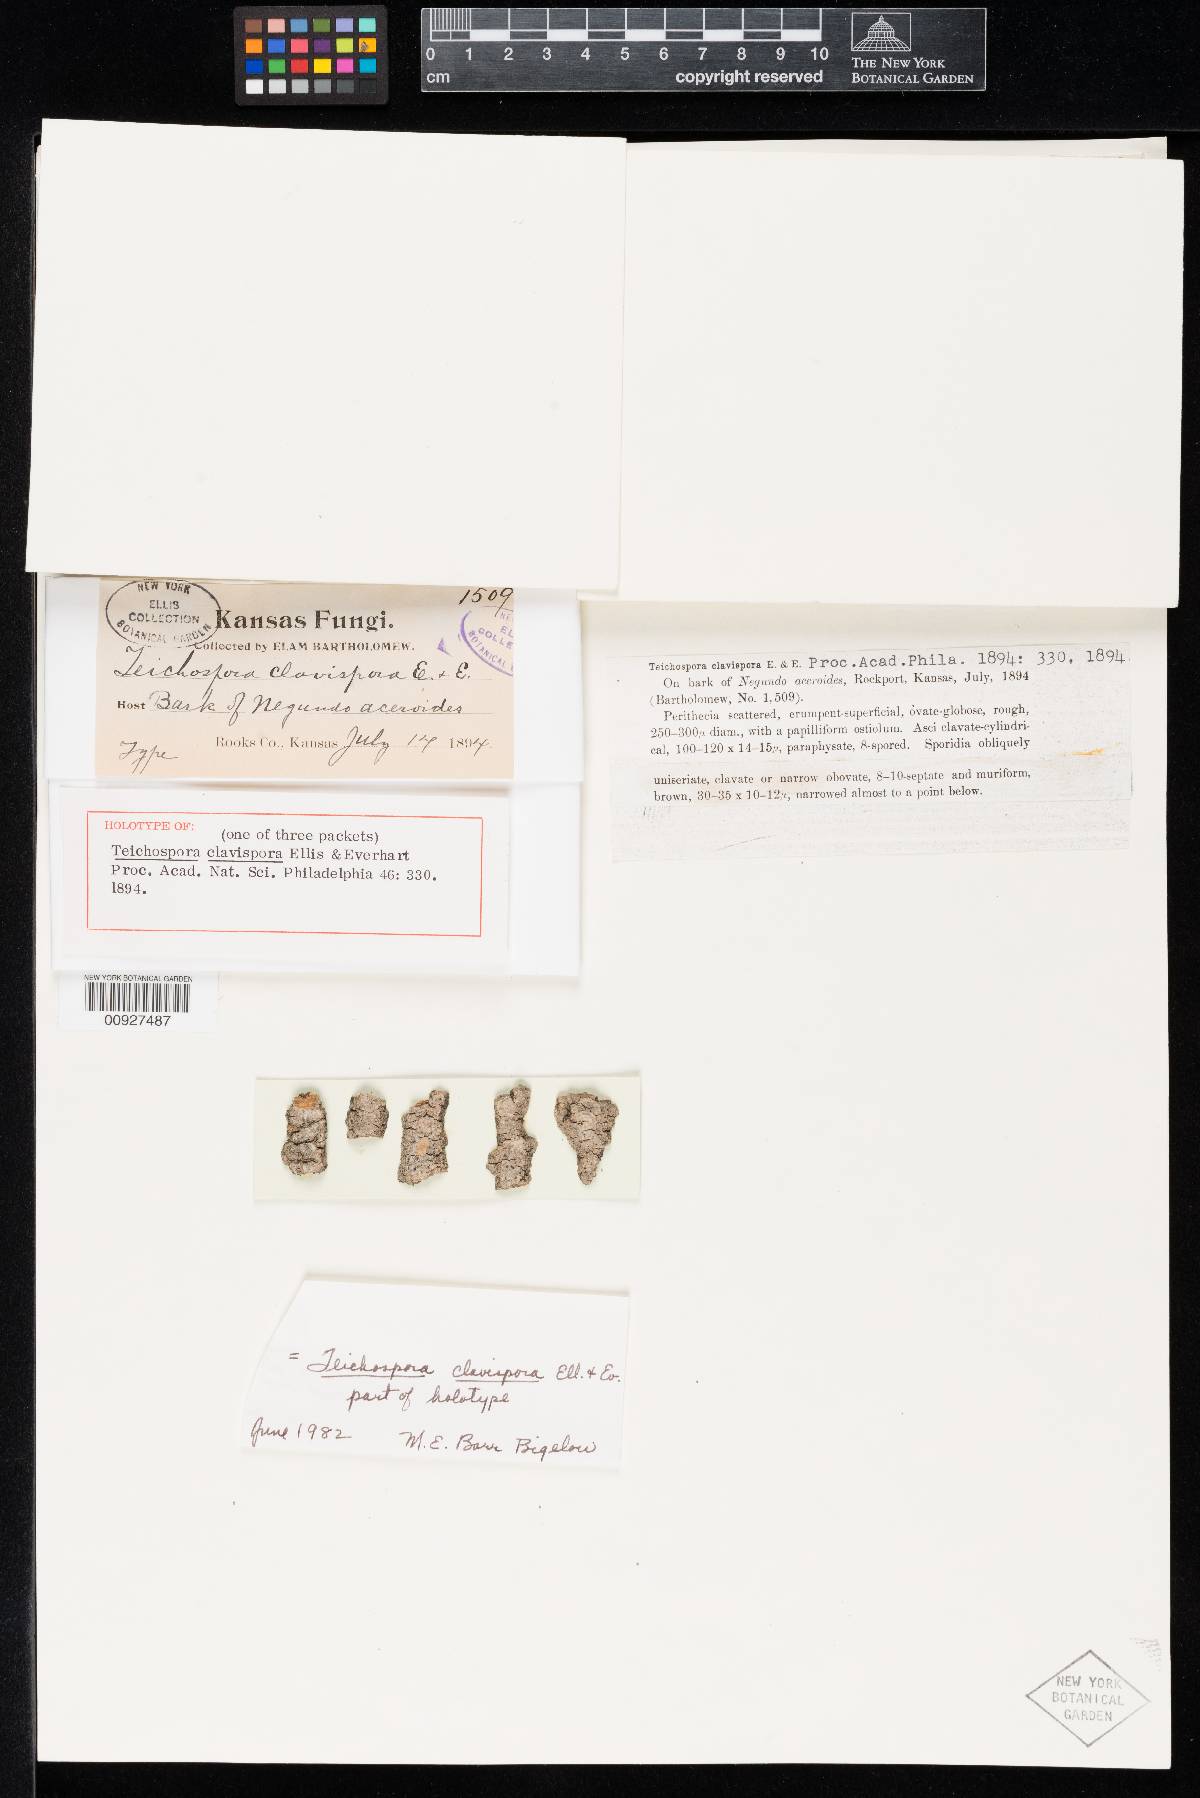 0 1 2 3 4 5 6 7 8 9 10
cm
copyright reserved
THE NEW YORK
BOTANICAL GARDEN
NEW YORK
ELLIS
COLLECTION
BOTANICAL GARDEN
1509
Kansas Fungi.
Collected by ELAM BARTHOLOMEW.
Teichospora clavispora E. & E.
Host Bark of Negundo aceroides
Rooks Co., Kansas July 14 1894.
Type
HOLOTYPE OF:
(one of three packets)
Teichospora clavispora Ellis & Everhart
Proc. Acad. Nat. Sci. Philadelphia 46: 330.
1894.
NEW YORK BOTANICAL GARDEN
00927487
Teichospora clavispora E. & E. Proc.Acad.Phila. 1894: 330. 1894.
On bark of Negundo aceroides, Rockport, Kansas, July, 1894
(Bartholomew, No. 1,509).
Perithecia scattered, erumpent-superficial, ovate-globose, rough,
250–300µ diam., with a papilliform ostiolum. Asci clavate-cylindri-
cal, 100–120 x 14–15µ, paraphysate, 8-spored. Sporidia obliquely
uniseriate, clavate or narrow obovate, 8–10-septate and muriform,
brown, 30–35 x 10–12µ, narrowed almost to a point below.
= Teichospora clavispora Ell. & Ev.
part of holotype
June 1982 M. E. Barr Bigelow
NEW YORK
BOTANICAL
GARDEN